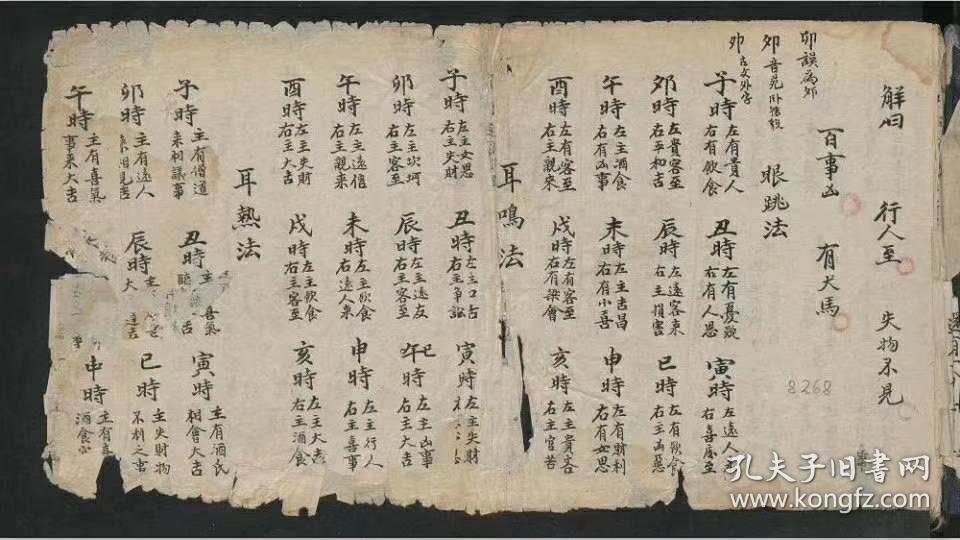 解曰 行人至 失物不見
百事凶 有犬馬
卯誤為夘
夘音兎
卯古文
眼跳法
子時 左有貴人 右有飲食 丑時 左有憂 右有人思 寅時 左遠人 右喜慶至
夘時 左貴客至 右平和吉 辰時 左遠客來 右主損害 巳時 左有飲食 右主凶惡
午時 左主酒食 右有凶事 未時 左主吉昌 右有小喜 申時 左有財利 右有女思
酉時 左有客至 右主親來 戌時 左有客至 右有聚會 亥時 左主貴客 右主官
耳鳴法
子時 左主女思 右主失財 丑時 左主口舌 右主爭訟 寅時 左主失財
夘時 左主坎坷 右主客至 辰時 左主遠友 右主客至 巳午時 左主凶事 右主大吉
午時 左主遠信 右主親來 未時 左主飲食 右遠人來 申時 左主行人 右主喜事
酉時 左主失財 右主大吉 戌時 左主飲食 右主客至 亥時 左主大吉 右主酒食
耳熱法
子時 主有僧道 來相議事 丑時 主 喜氣 吉 寅時 主有酒 相會大吉
夘時 主有遠人 來相見吉 辰時 主 大 巳時 主失財物 不利之事
午時 主有喜氣 事來大吉 申時 主有喜 酒食
8268
孔夫子旧书网
www.kongfz.com